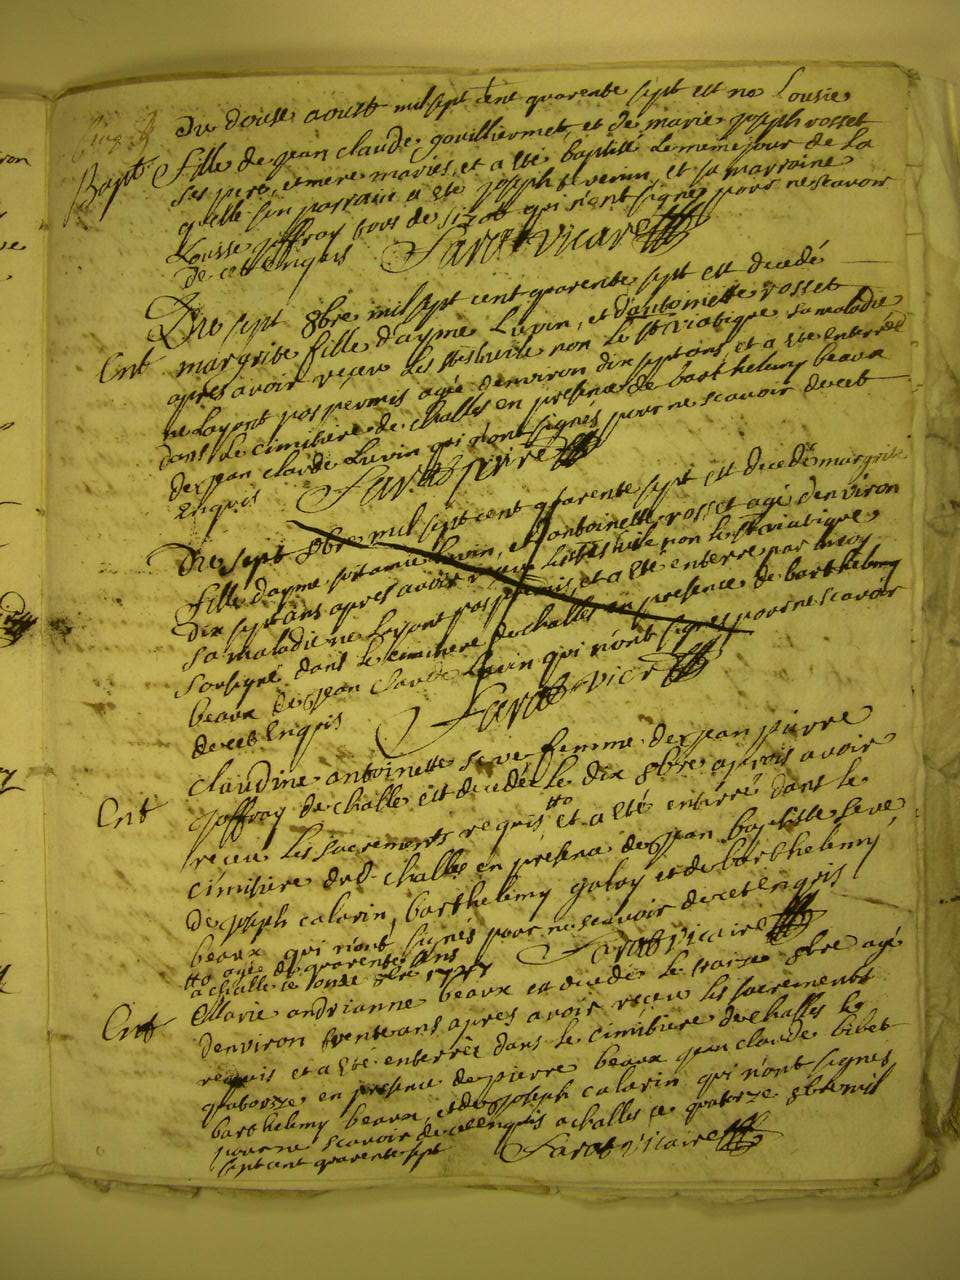 Du douse aoust mil sept cent quarente sept est ne Lousie
Bapt fille de jean claude gouilliermet, et de marie joseph rosset
ses pere, et mere mariés, et a été baptisé le meme jour de la
quelle son parrain a été joseph severin et sa marraine
Lousse joffray tous de qui n'ont signés pour ne scavoir
de cet enquis Sarat vicaire
Du sept 8bre mil sept cent quarente sept est decedé
Ent margrite fille d'ayme Luvin, et d'antoinette rosset
apres avoir reçeu les stes huile non le st viatique sa maladie
ne layant pas permis agée denviron dix sept ans, et a été enterrée
dans le cimitiere de challes en presence de barthelemy beaux
de jean claude Luvin qui n'ont signés pour ne scavoir de cet
enquis Sarat vicaire
Du sept 8bre mil sept cent quarente sept est decedé margrite
fille dayme Luvin, et d'antoinette rosset agé denviron
dix sept ans apres avoir reçeu les stes huile non le st viatique
sa maladie ne layant pas permis, et a été enterré par moy
sousigné dans le cimitiere de challes en presence de barthelemy
beaux de jean claude Luvin qui n'ont signés pour ne scavoir
de cet enquis Sarat vicr
claudine antoinette seve femme de jean pierre
Ent joffray de challe est decedée le dix 8bre aprois avoir
reçeu les sacrements requis tto et a été enterré dans le
cimitiere dud. challes en presence de jean baptiste seve
de joseph calarin, barthelemy galay et de barthelemy
beaux qui n'ont signés pour ne scavoir de cet enquis
tto agé de quarente ans Sarat vicaire
a challe ce onze 8bre 1747
Ent Marie andrianne beaux est decedé le traize 8bre agé
denviron trente ans apres avoir reçeu les sacrements
requis et a été enterrée dans le cimitiere de challes le
quatorze en presence de pierre beaux jean claude bibet
barthelemy beaux, et de joseph calarin qui n'ont signés
pour ne scavoir de cet enquis a challes ce quatorze 8bre mil
sept cent quarente sept Sarat vicaire